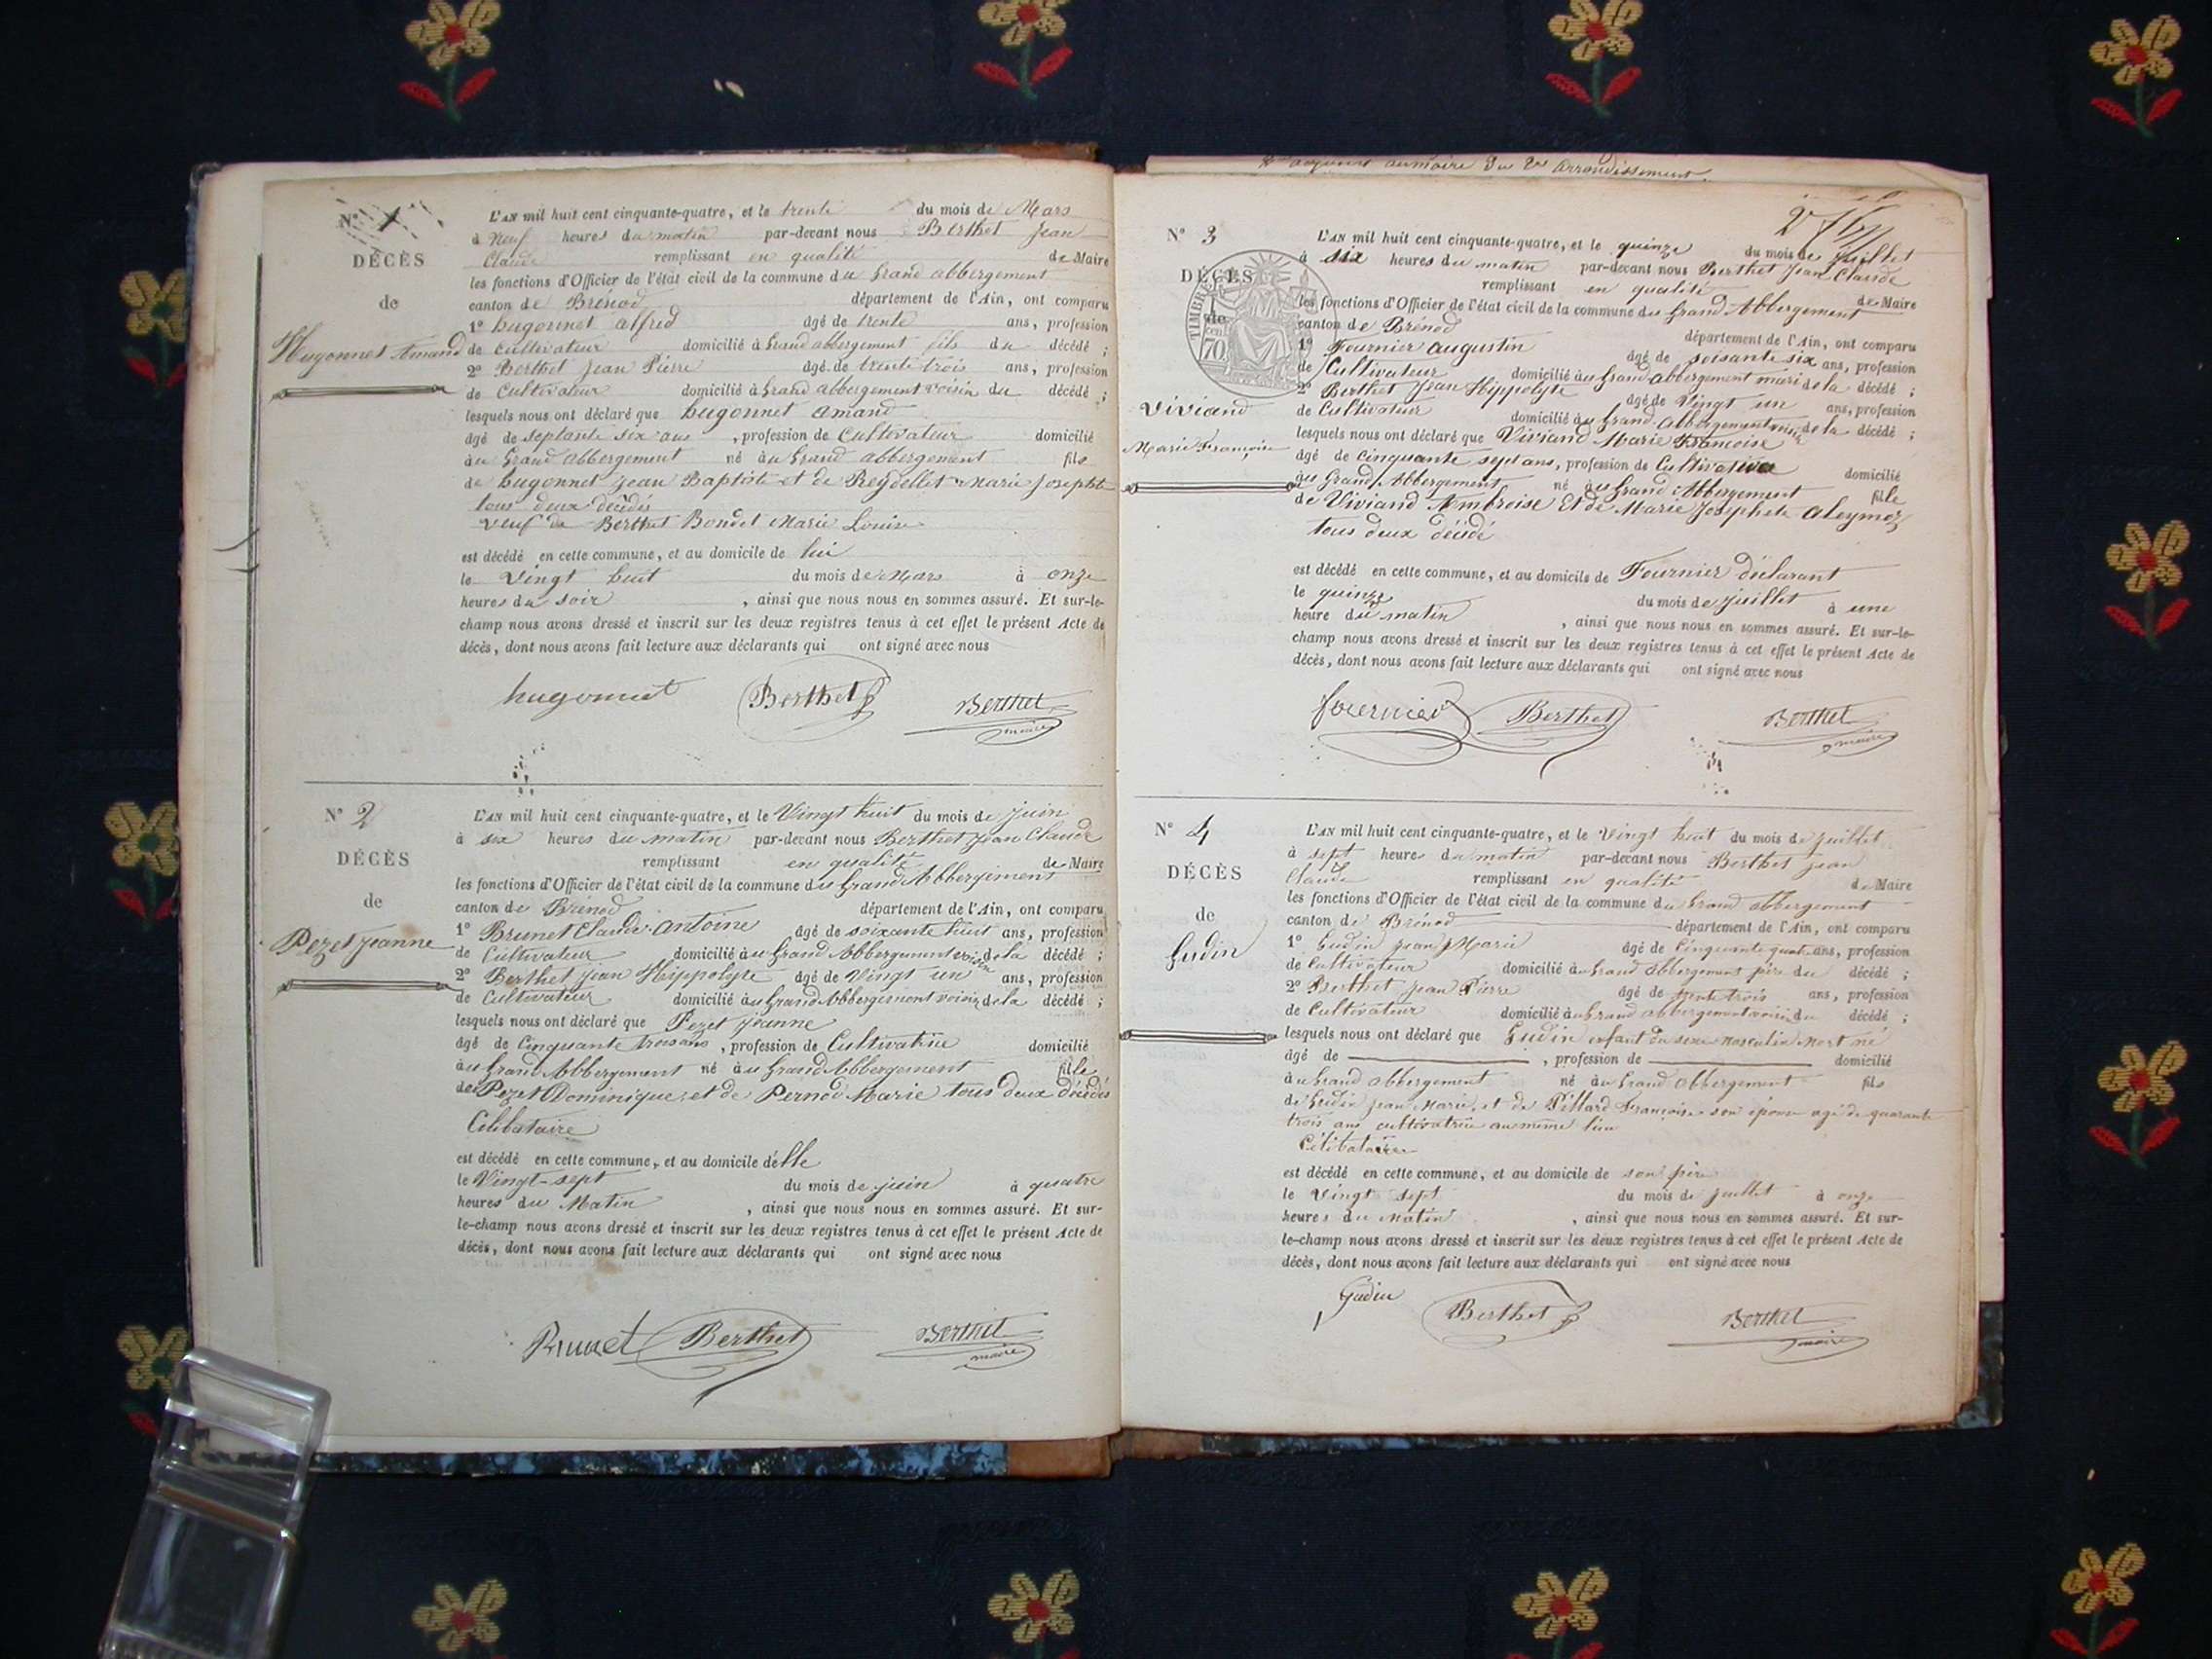 N° 1
DÉCÈS
de
Hugonnet Amand
L'AN mil huit cent cinquante-quatre, et le trente du mois de Mars
à Neuf heures du matin par-devant nous Berthet Jean
Claude remplissant en qualité de Maire
les fonctions d'Officier de l'état civil de la commune du Grand abbergement
canton de Brénod département de l'Ain, ont comparu
1° hugonnet alfred âgé de trente ans, profession
de Cultivateur domicilié à Grand abbergement fils du décédé ;
2° Berthet Jean Pierre âgé de trente trois ans, profession
de Cultivateur domicilié à Grand abbergement voisin du décédé ;
lesquels nous ont déclaré que hugonnet amand
âgé de septante six ans, profession de Cultivateur domicilié
au Grand abbergement né au Grand abbergement fils
de hugonnet Jean Baptiste et de Reydellet Marie Josephte
tous deux décédés
veuf de Berthet Bondet Marie Louise
est décédé en cette commune, et au domicile de lui
le Vingt huit du mois de Mars à onze
heures du soir, ainsi que nous nous en sommes assuré. Et sur-le-
champ nous avons dressé et inscrit sur les deux registres tenus à cet effet le présent Acte de
décès, dont nous avons fait lecture aux déclarants qui ont signé avec nous
hugonnet Berthet Berthet
maire
N° 2
DÉCÈS
de
Pezet Jeanne
L'AN mil huit cent cinquante-quatre, et le Vingt huit du mois de Juin
à six heures du matin par-devant nous Berthet Jean Claude
remplissant en qualité de Maire
les fonctions d'Officier de l'état civil de la commune du Grand Abbergement
canton de Brénod département de l'Ain, ont comparu
1° Brunet Claude Antoine âgé de soixante huit ans, profession
de Cultivateur domicilié au Grand Abbergement voisin de la décédé ;
2° Berthet Jean Hippolyte âgé de Vingt un ans, profession
de Cultivateur domicilié au Grand Abbergement voisin de la décédé ;
lesquels nous ont déclaré que Pezet Jeanne
âgé de Cinquante trois ans, profession de Cultivatrice domicilié
au Grand Abbergement né au Grand Abbergement fille
de Pezet Dominique et de Pernod Marie tous deux décédés
Célibataire
est décédé en cette commune, et au domicile d'elle
le Vingt-sept du mois de juin à quatre
heures du Matin, ainsi que nous nous en sommes assuré. Et sur-
le-champ nous avons dressé et inscrit sur les deux registres tenus à cet effet le présent Acte de
décès, dont nous avons fait lecture aux déclarants qui ont signé avec nous
Brunet Berthet Berthet
maire
au maire du 2e arrondissement.
N° 3
DÉCÈS
de
TIMBRE
70
Viviand
Marie Françoise
L'AN mil huit cent cinquante-quatre, et le quinze du mois de Juillet
à six heures du matin par-devant nous Berthet Jean Claude
remplissant en qualité de Maire
les fonctions d'Officier de l'état civil de la commune du Grand Abbergement
canton de Brénod département de l'Ain, ont comparu
1° Fournier augustin âgé de soisante six ans, profession
de Cultivateur domicilié au Grand abbergement mari de la décédé ;
2° Berthet Jean Hippolyte âgé de Vingt un ans, profession
de Cultivateur domicilié au Grand Abbergement voisin de la décédé ;
lesquels nous ont déclaré que Viviand Marie Françoise
âgé de Cinquante sept ans, profession de Cultivatrice domicilié
au Grand Abbergement né au Grand Abbergement fille
de Viviand Ambroise Et de Marie Josephete
tous deux décédé
est décédé en cette commune, et au domicile de Fournier déclarant
le quinze du mois de juillet à une
heure du matin, ainsi que nous nous en sommes assuré. Et sur-le-
champ nous avons dressé et inscrit sur les deux registres tenus à cet effet le présent Acte de
décès, dont nous avons fait lecture aux déclarants qui ont signé avec nous
fournier Berthet Berthet
maire
N° 4
DÉCÈS
de
Gudin
L'AN mil huit cent cinquante-quatre, et le Vingt huit du mois de Juillet
à sept heures du matin par-devant nous Berthet Jean
Claude remplissant en qualité de Maire
les fonctions d'Officier de l'état civil de la commune du Grand abbergement
canton de Brénod département de l'Ain, ont comparu
1° Gudin Jean Marie âgé de Cinquante quatre ans, profession
de Cultivateur domicilié au Grand abbergement père du décédé ;
2° Berthet Jean Pierre âgé de trente trois ans, profession
de Cultivateur domicilié au Grand abbergement voisin du décédé ;
lesquels nous ont déclaré que Gudin enfant du sexe masculin Mort né
âgé de , profession de domicilié
au Grand abbergement né au Grand abbergement fils
de Gudin Jean Marie, et de Pillard Françoise son épouse agé de quarante
trois ans cultivatrice au même lieu
Célibataire
est décédé en cette commune, et au domicile de son père
le Vingt sept du mois de juillet à onze
heures du Matin, ainsi que nous nous en sommes assuré. Et sur-
le-champ nous avons dressé et inscrit sur les deux registres tenus à cet effet le présent Acte de
décès, dont nous avons fait lecture aux déclarants qui ont signé avec nous
Gudin Berthet Berthet
maire